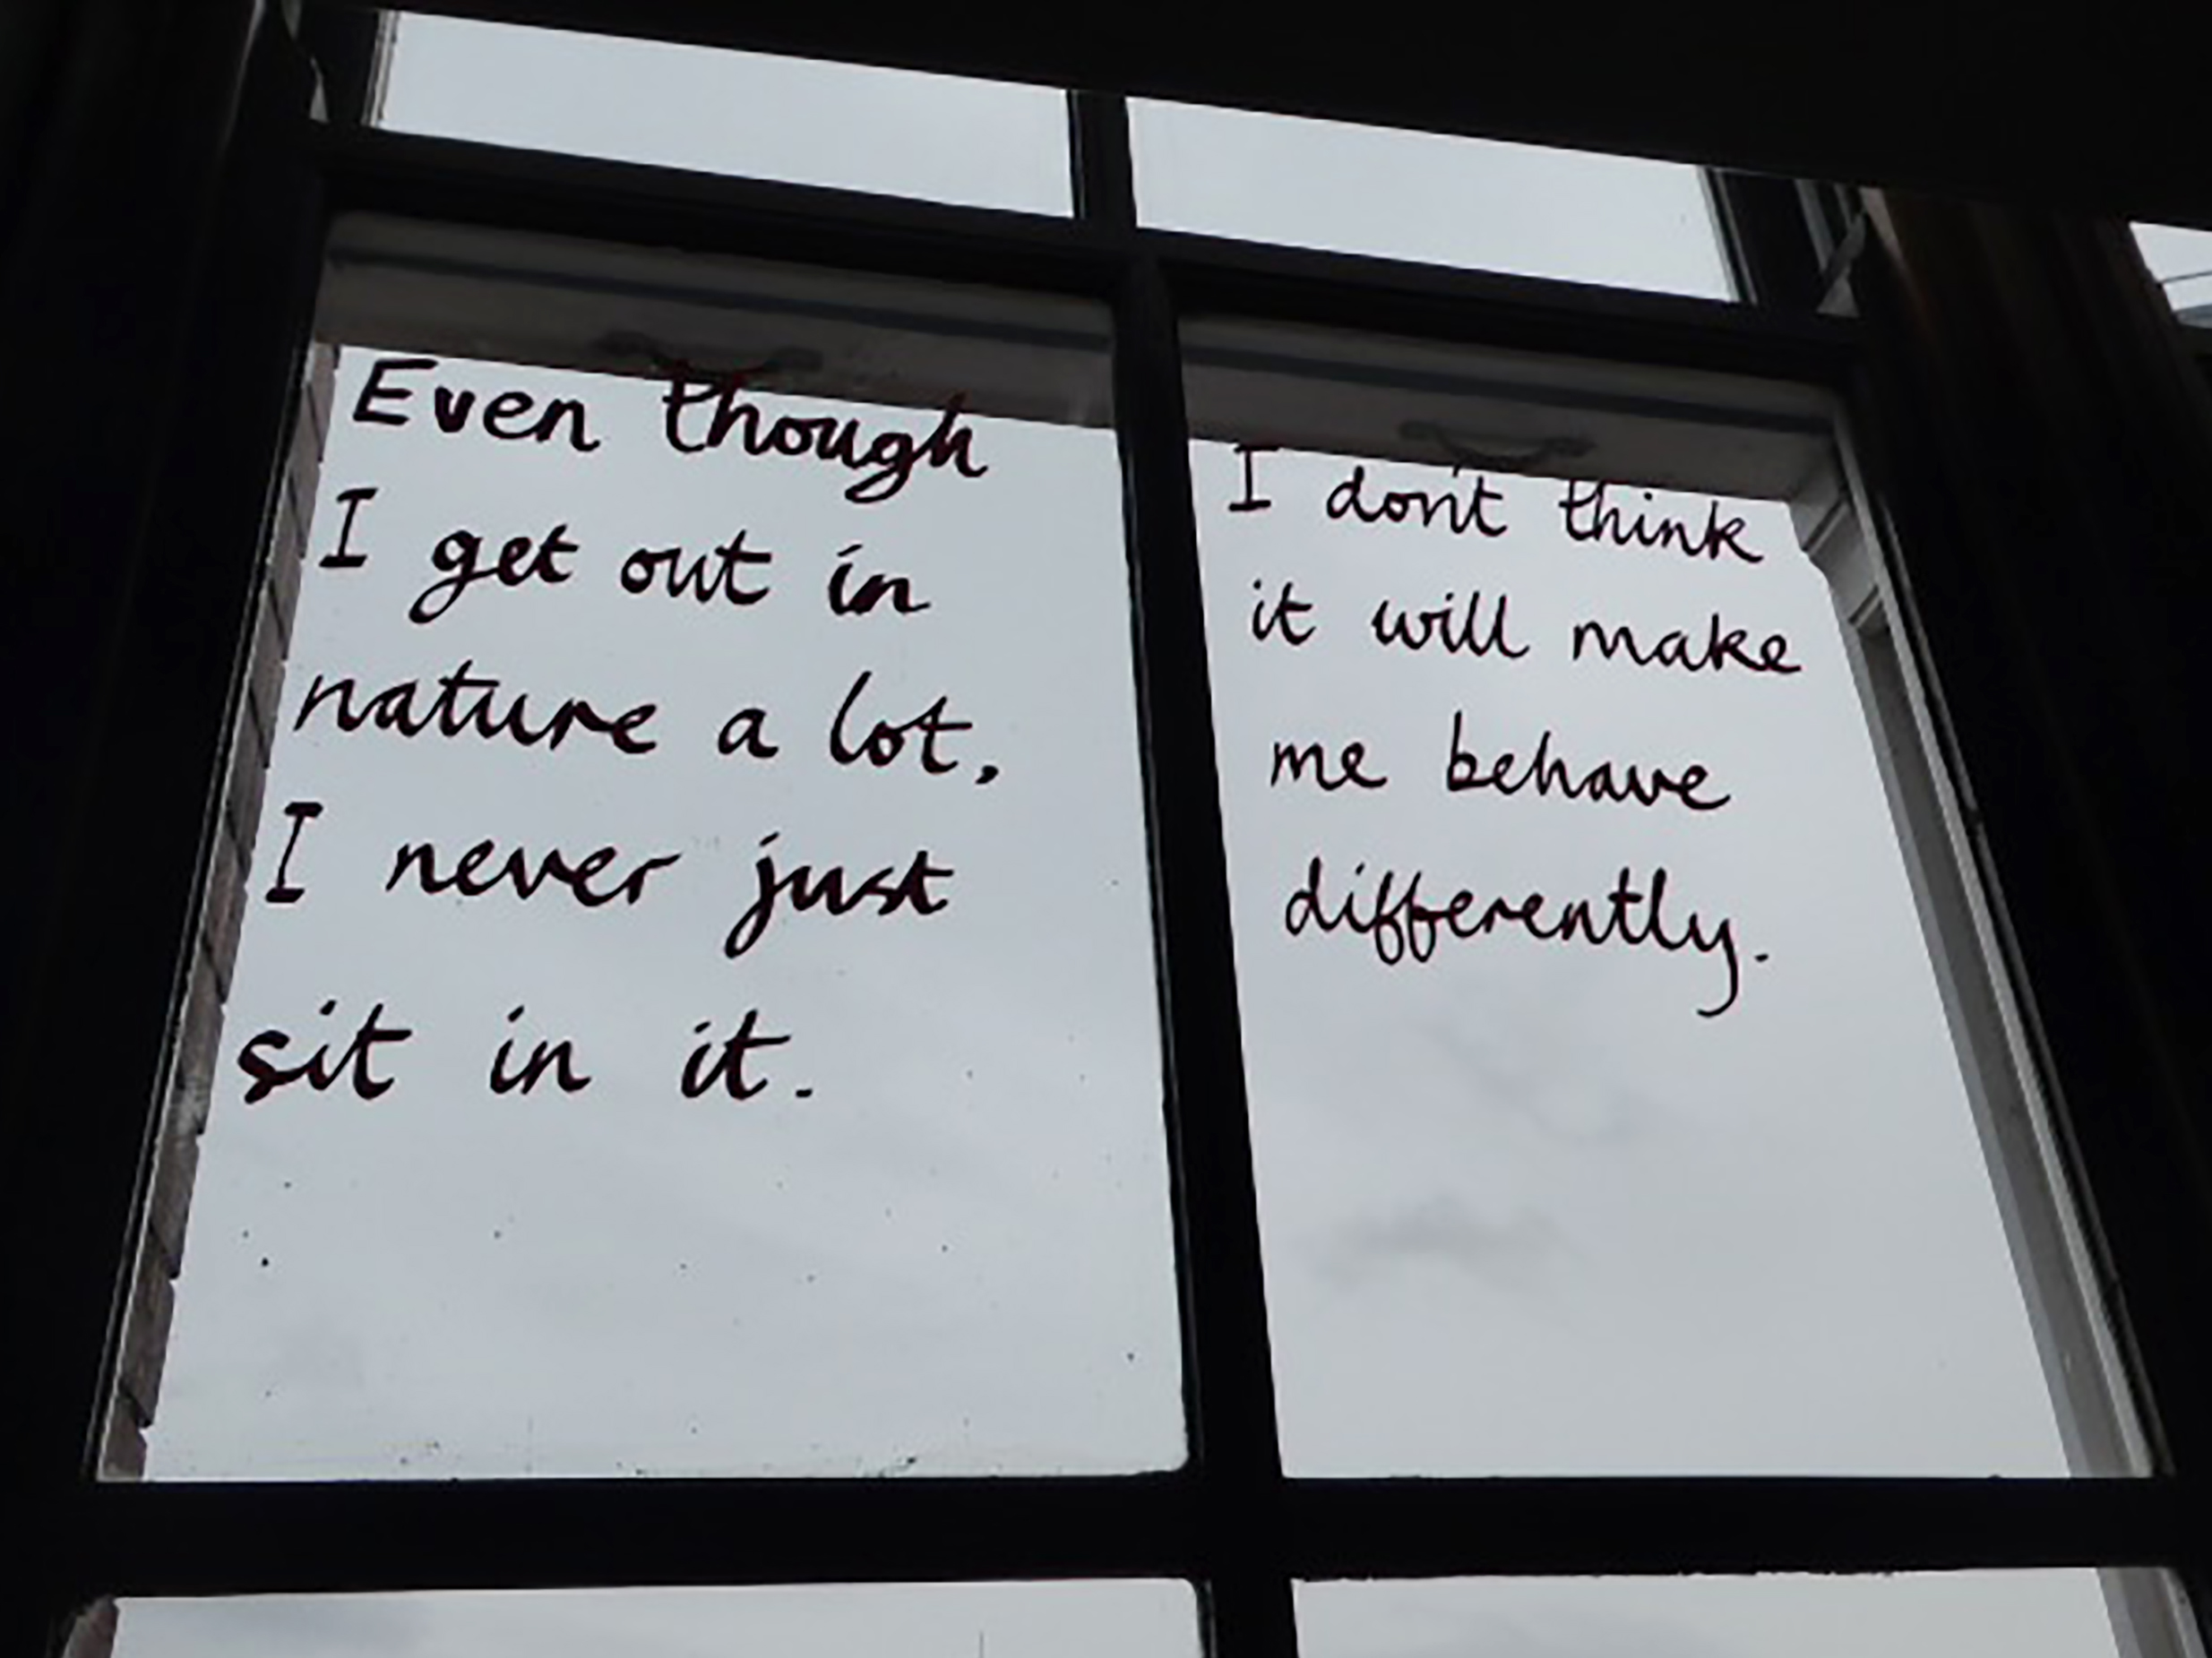 Even though
I get out in
nature a lot,
I never just
sit in it.
I don't think
it will make
me behave
differently.